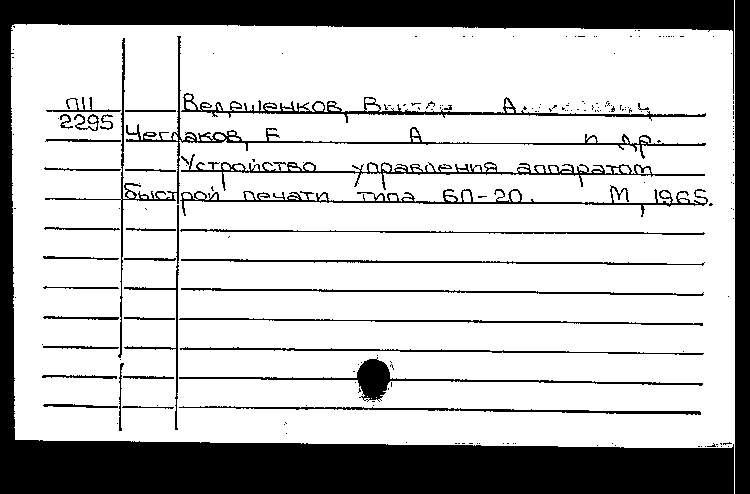 П11 Ведешенков, Виктор А
2295 Чеглаков, Е А и др.
Устройство управления аппаратом
быстрой печати типа БП-20. М, 1965.